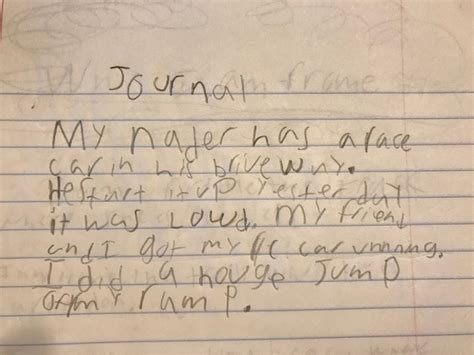 Journal
My nader has a race
car in his brivewny.
He start it up yesterday
it was Lowd. My friend
and I got my RC car unning.
I did a houge Jump
off my ramp.